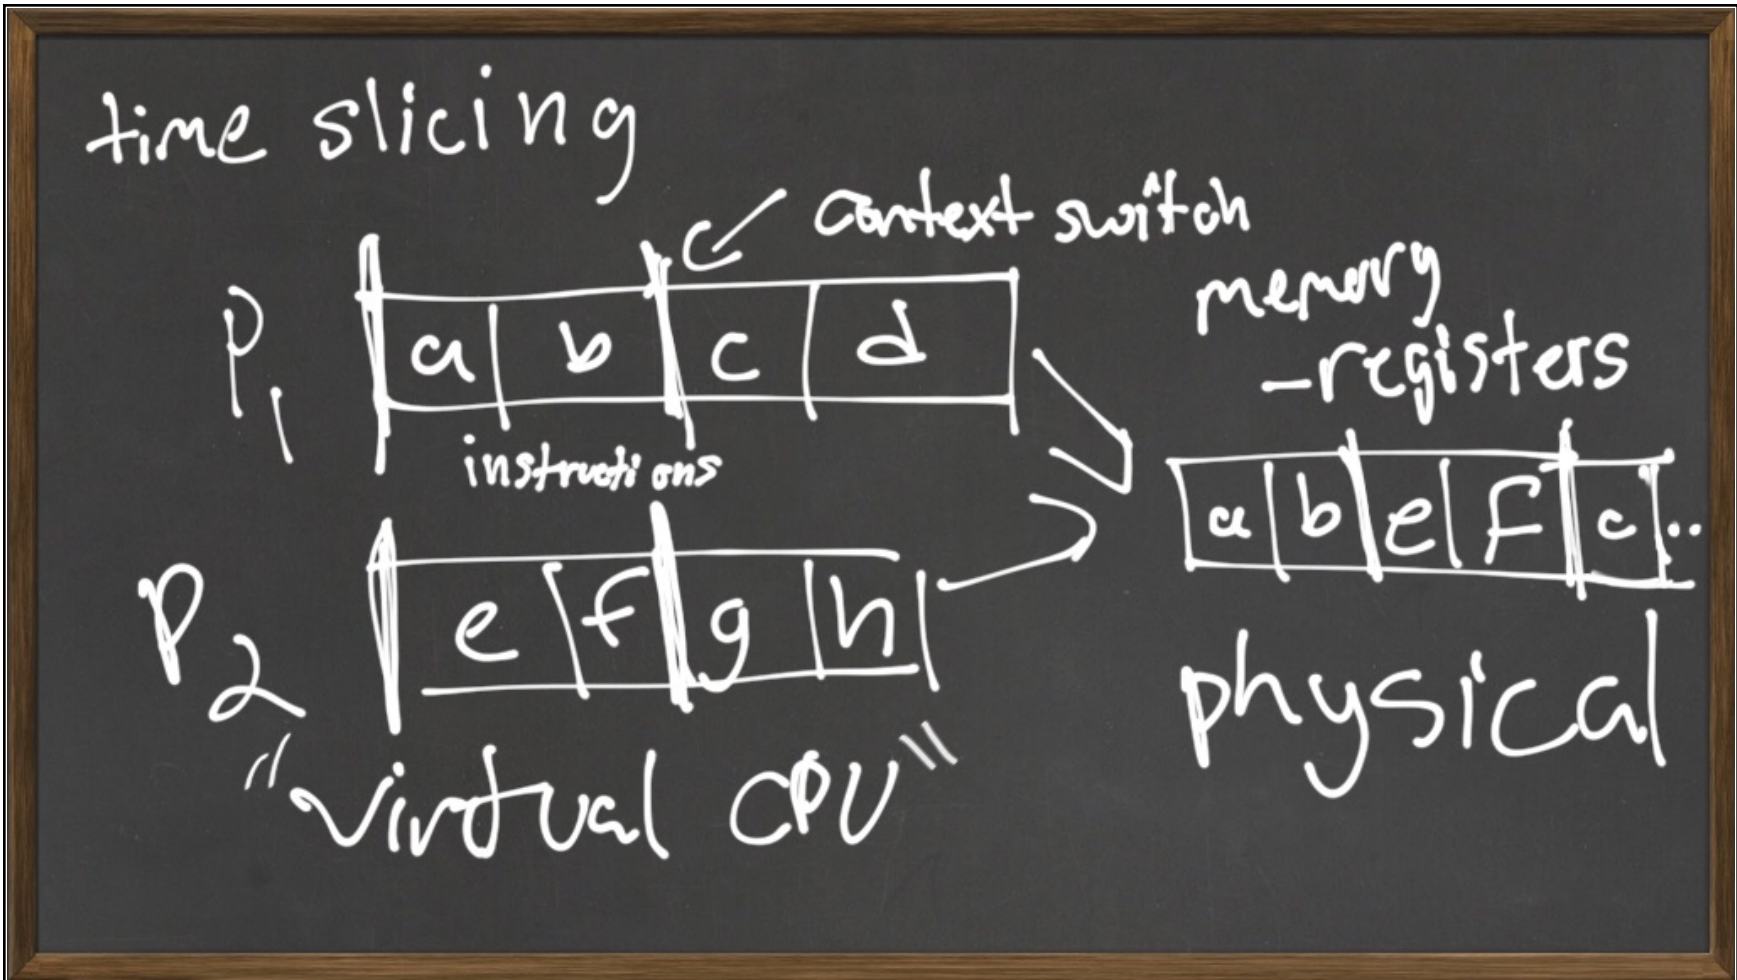 time slicing
context switch
P1 a b c d
instructions
P2 e f g h
"virtual CPU"
memory
-registers
a b e f c ..
physical